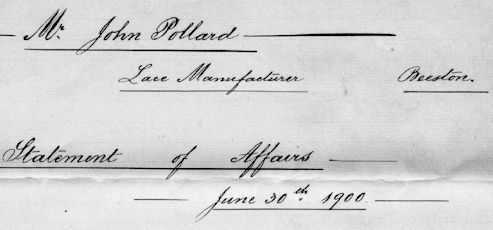 Mr. John Pollard
Lace Manufacturer Beeston.
Statement of Affairs
June 30th 1900